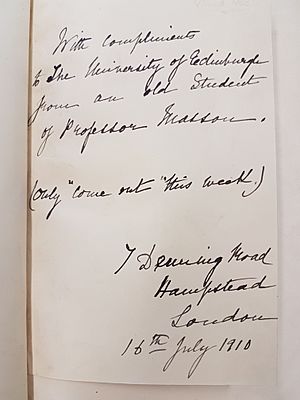 With compliments
to The University of Edinburgh
from an old Student
of Professor Masson.
(Only "come out" this week.)
7 Denning Road
Hampstead
London
16th July 1910